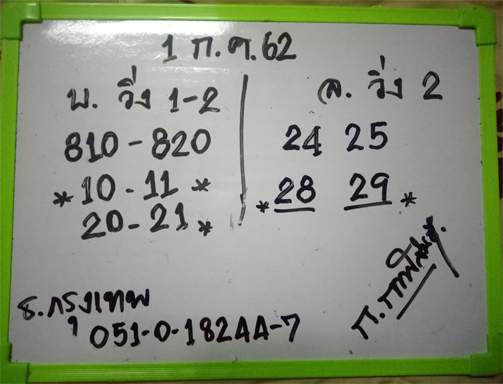 1 ก.ค. 62
บ. วิ่ง 1-2
810-820
*10-11*
20-21*
ล. วิ่ง 2
24 25
*28 29*
ธ.กรุงเทพ
051-0-18244-7